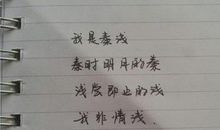 我是秦浅
秦时明月的秦
浅尝即止的浅
我非情浅.